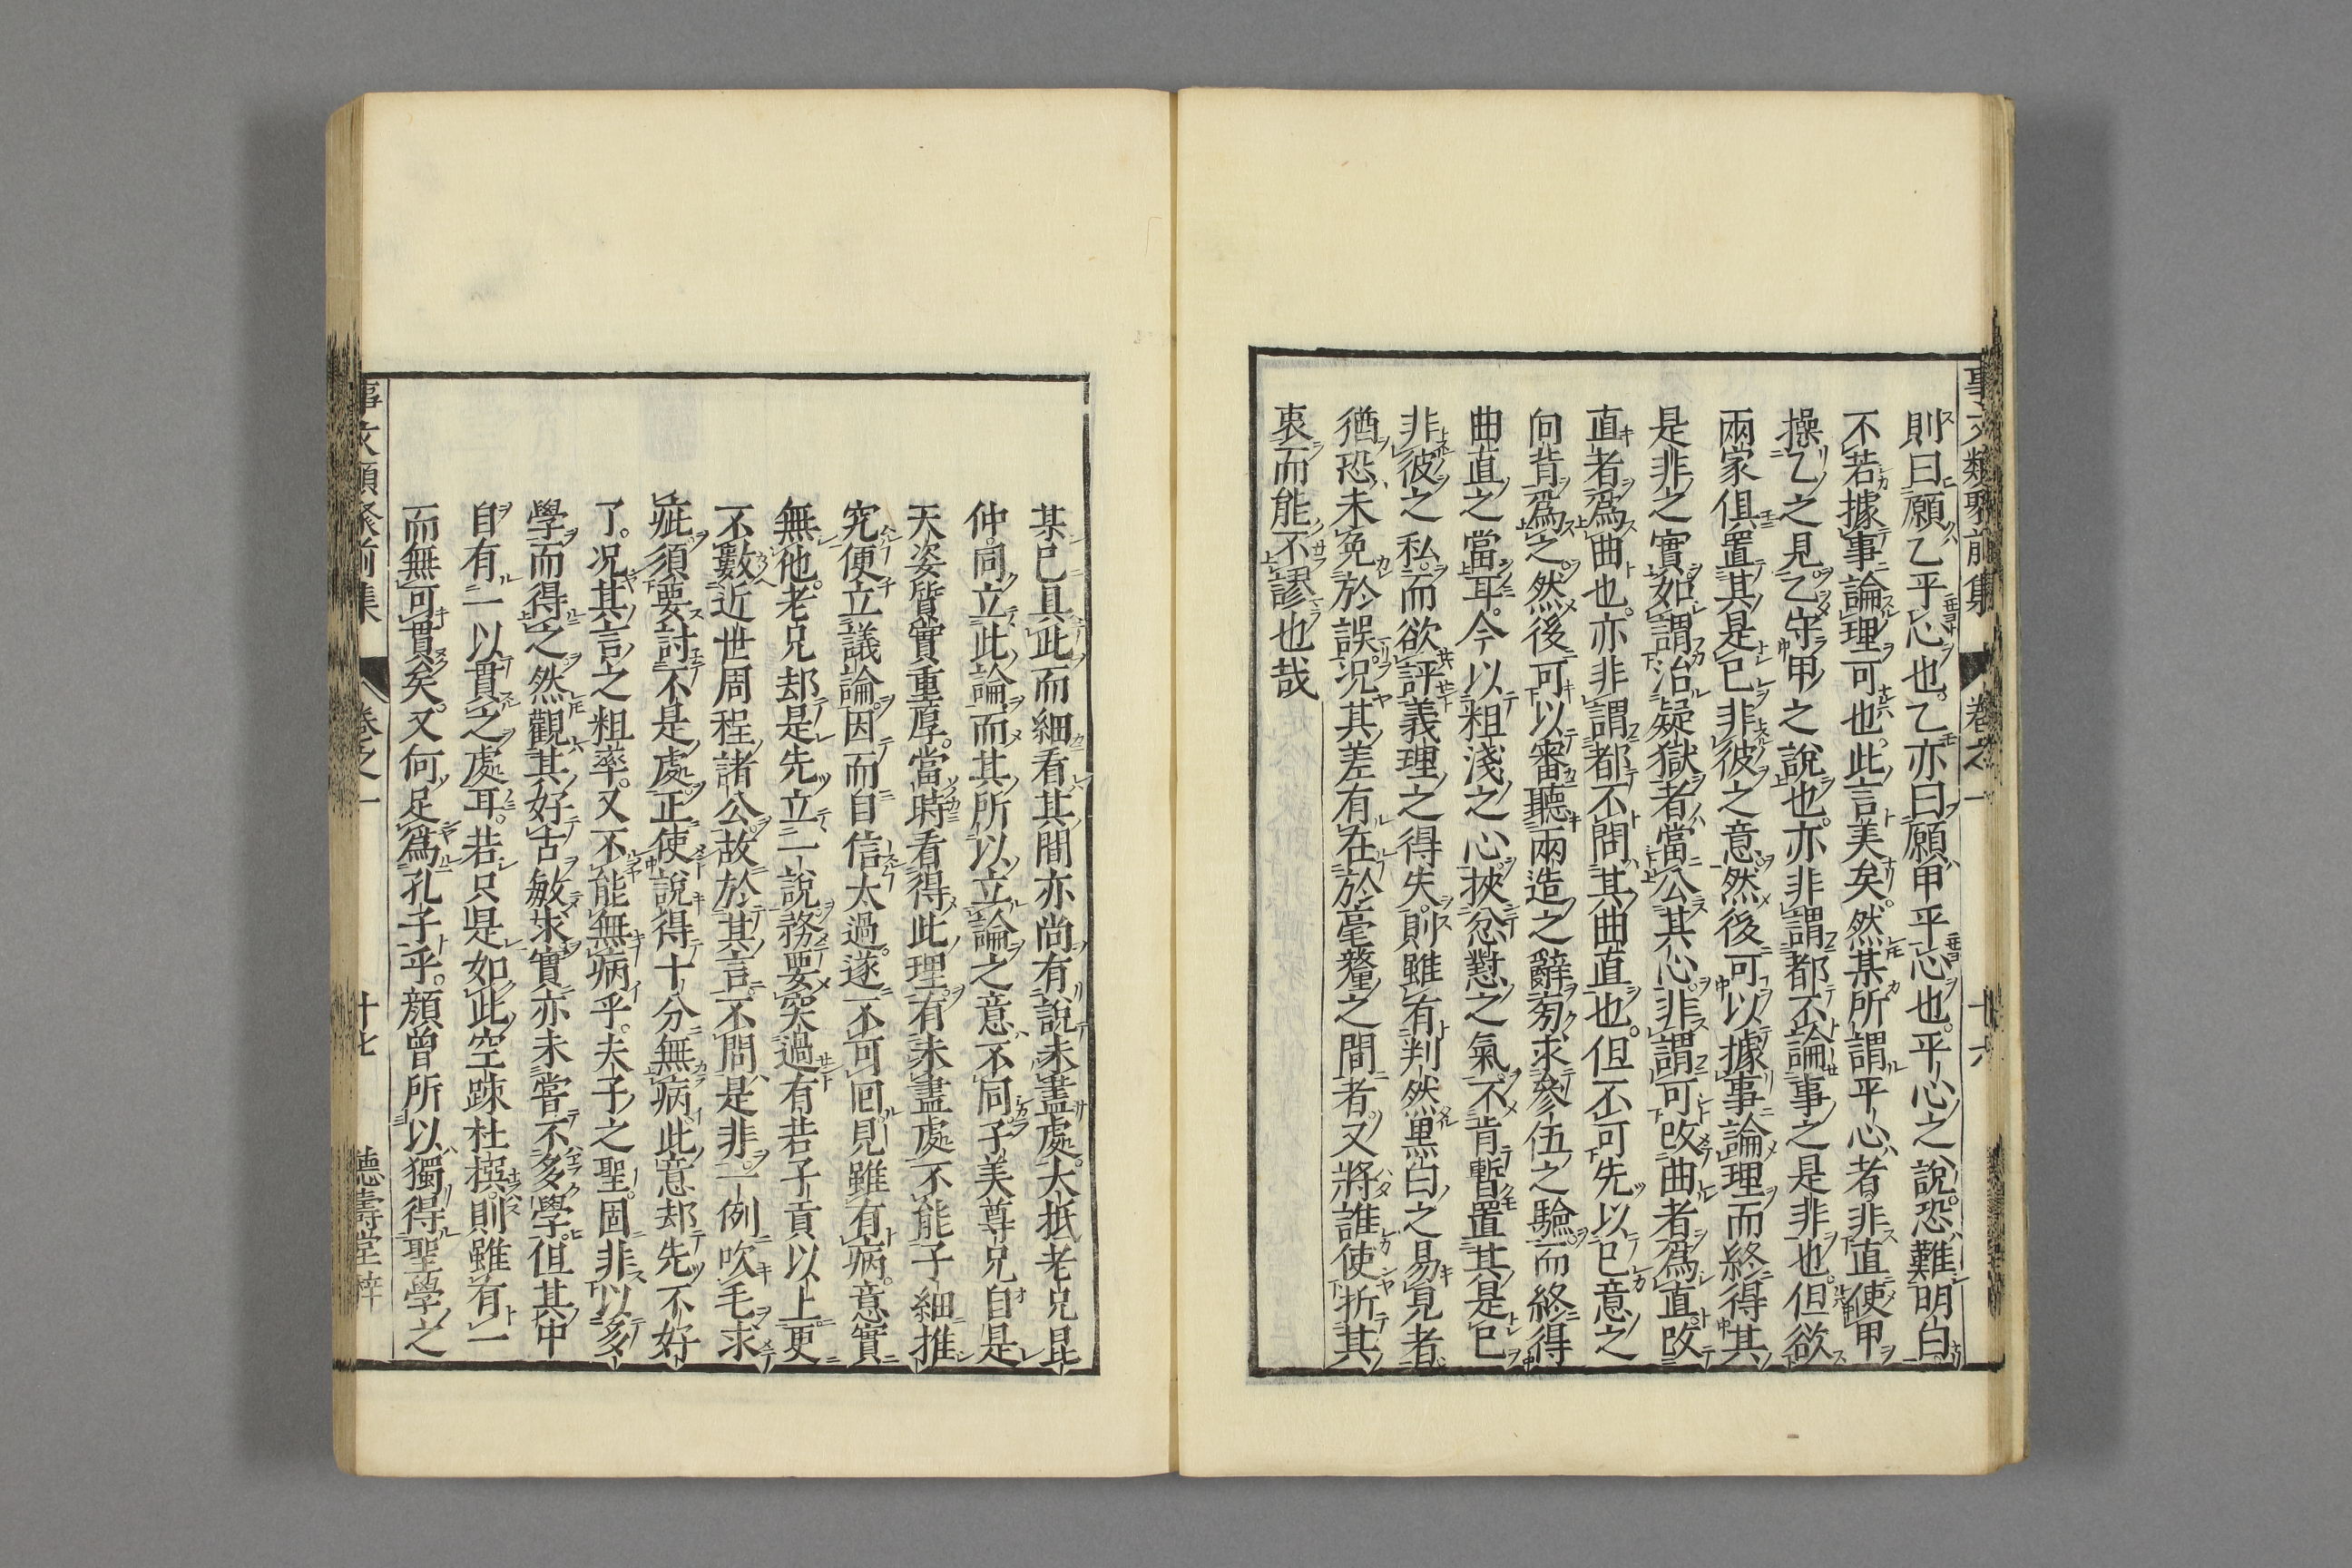 事文類聚前集 卷之一 十六
則曰願乙平心也乙亦曰願甲平心也平心之說恐難明白
不若據事論理可也此言美矣然某所謂平心者非直使甲
操乙之見乙守甲之說也亦非謂都不論事之是非也但欲
兩家俱置其是已非彼之意然後可以據事論理而終得其
是非之實如謂治疑獄者當公其心非謂可改曲者爲直改
直者爲曲也亦非謂都不問其曲直也但不可先以已意之
向背爲之然後可以審聽兩造之辭旁求參伍之驗而終得
曲直之當耳今以粗淺之心挾忿懟之氣不肯暫置其是已
非彼之私而欲評義理之得失則雖有判然黑白之易見者
猶恐未免於誤況其差有在於毫釐之間者又將誰使折其
衷而能不謬也哉
某已具此而細看其間亦尚有說未盡處大抵老兄昆
仲同立此論而其所以立論之意不同子美尊兄自是
天姿質實重厚當時看得此理有未盡處不能子細推
究便立議論因而自信太過遂不可囘見雖有病意實
無他老兄却是先立一說務要突過有若子貢以上更
不數近世周程諸公故於其言不問是非一例吹毛求
疵須要討不是處正使說得十分無病此意却先不好
了况其言之粗率又不能無病乎夫子之聖固非以多
學而得之然觀其好古敏求實亦未嘗不多學但其中
自有一以貫之處耳若只是如此空疎杜撰則雖有一
而無可貫矣又何足爲孔子乎顔曾所以獨得聖學之
事文類聚前集 卷之一 十七 德壽堂梓